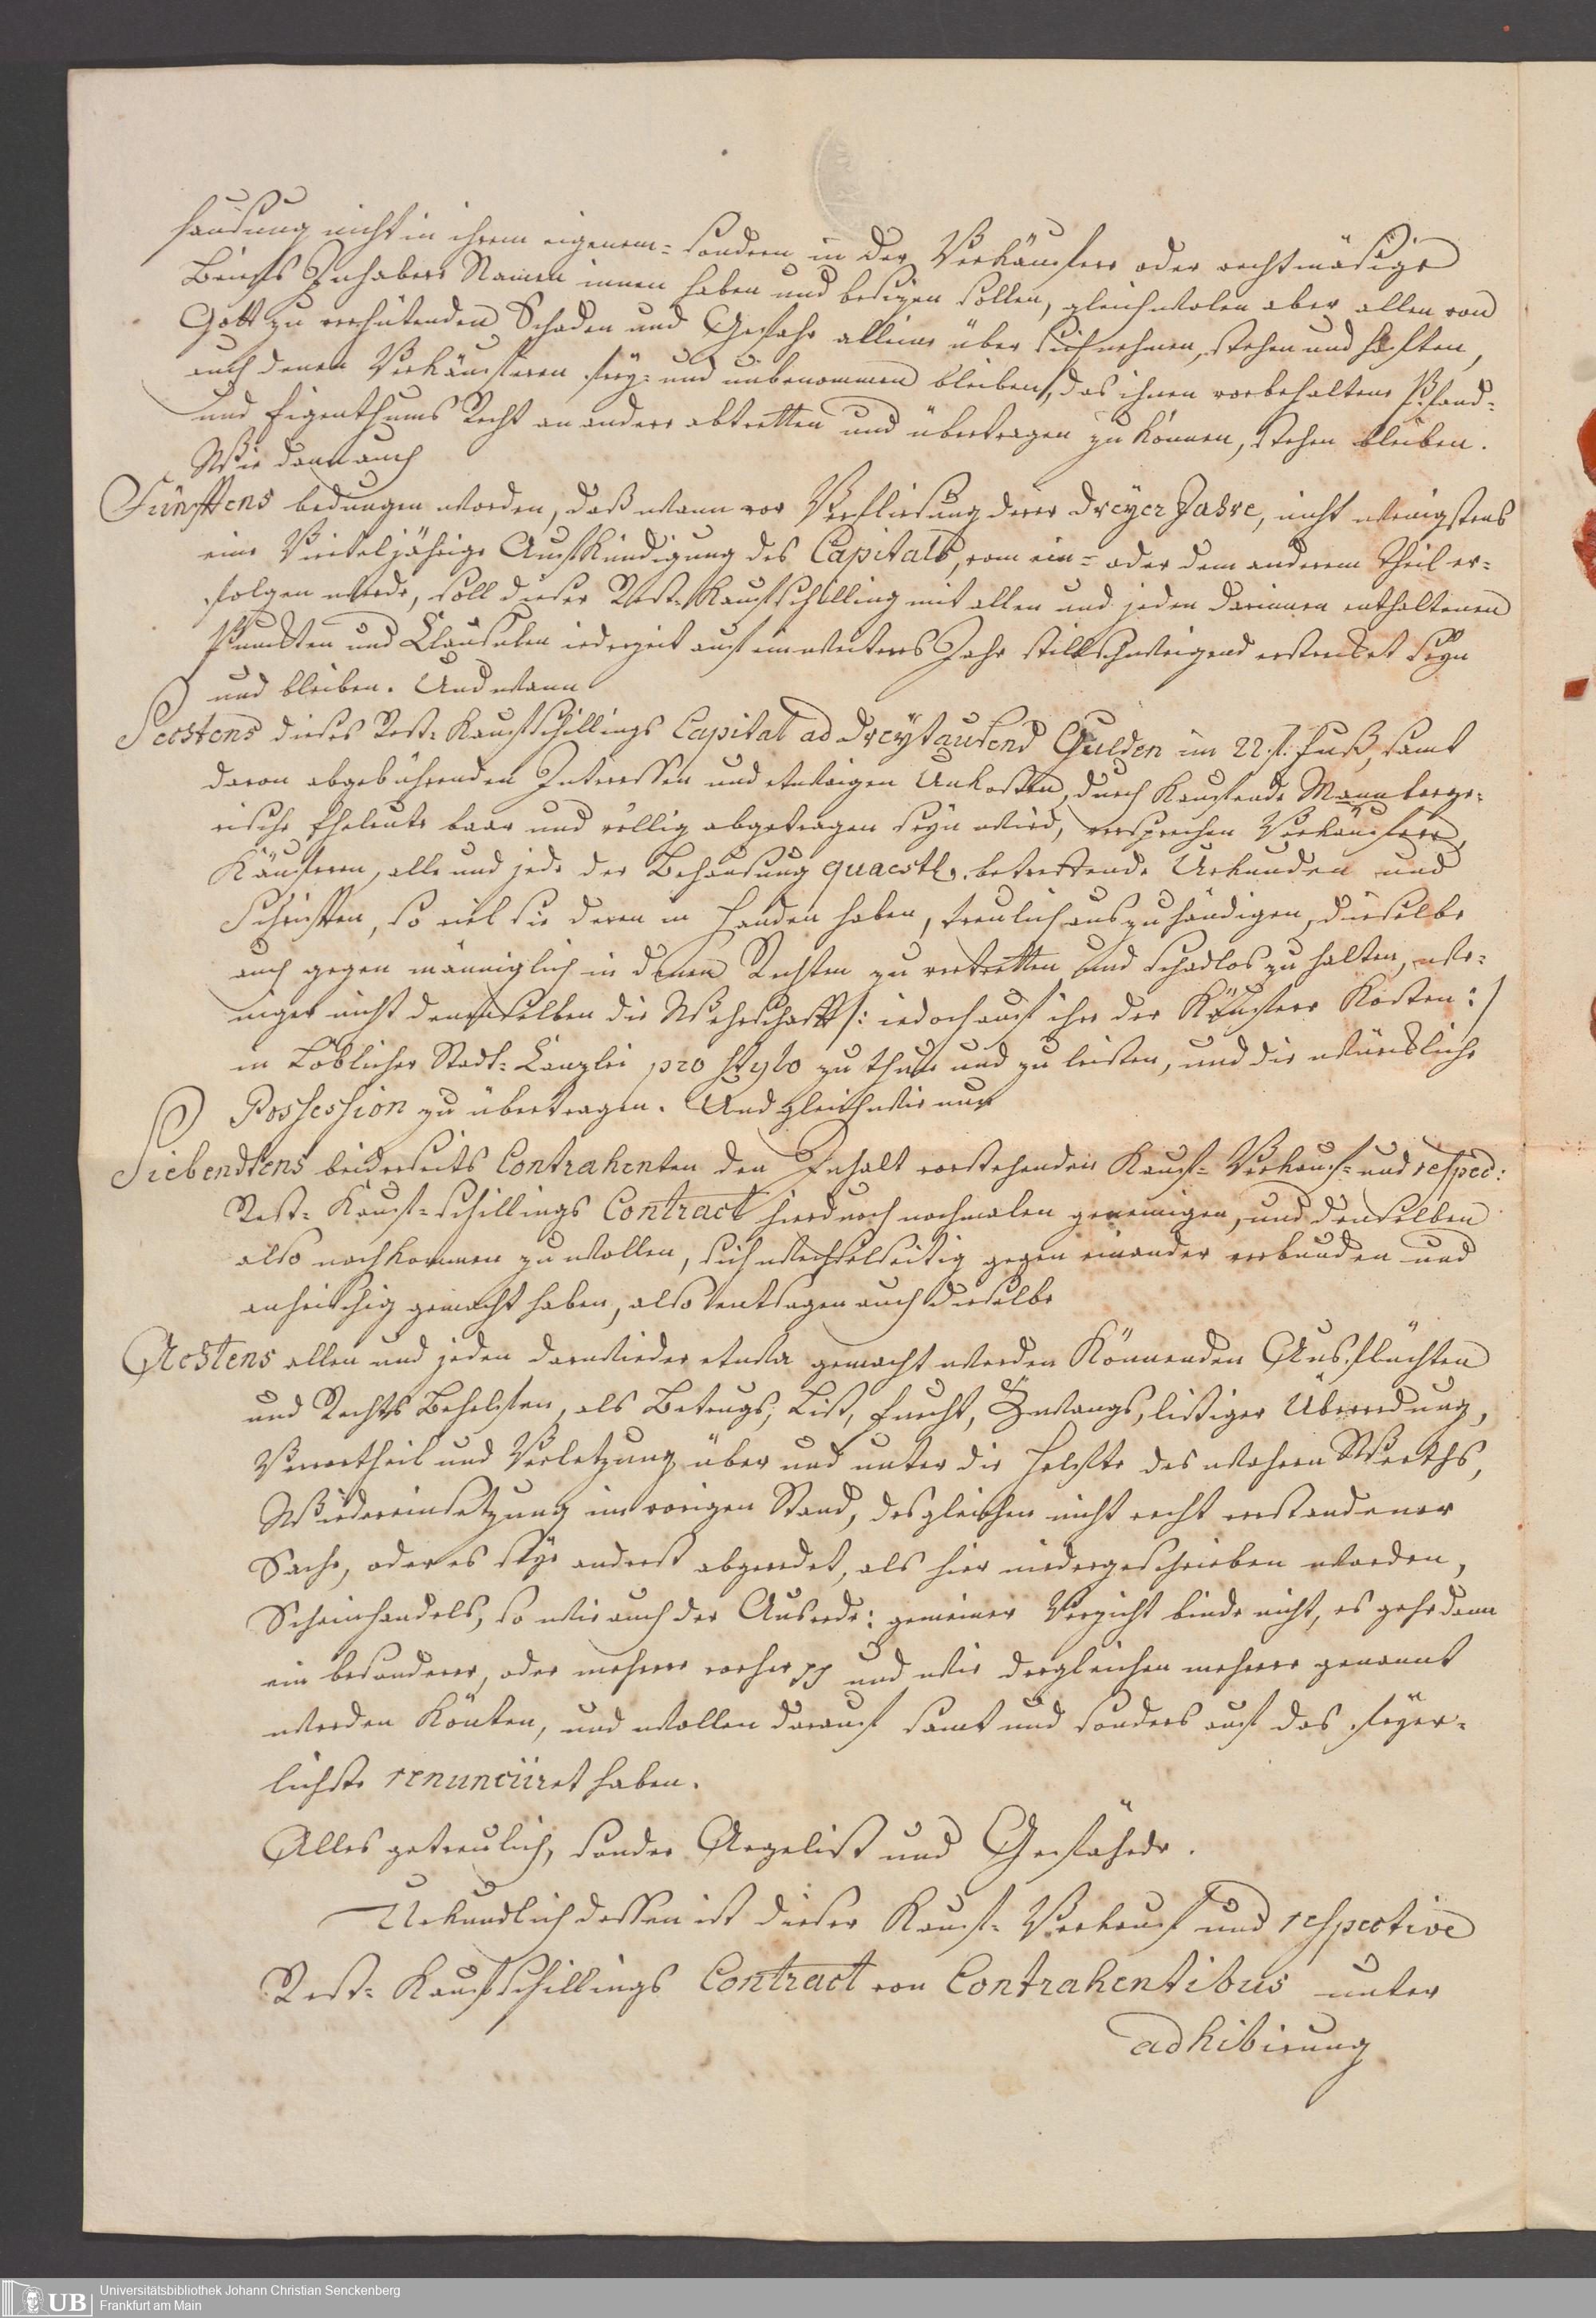 hausung nicht in ihrem eigenem- sondern in der Verkäuffere oder rechtmäsige
Briefs Inhabere Namen innen haben und besizen sollen, gleichwolen aber allen von
Gott zu verhütenden Schaden und Gefahr alleine über sich nehmen, stehen und hafften,
auch denen Verkäufferen frey- und unbenommen bleiben, das ihnen vorbehaltene Pfand-
und Eigenthums Recht an andere abtretten und übertragen zu können, stehen bleiben.
Wie dann auch
Fünfftens bedungen worden, daß wann vor Verfliesung derer dreyer Jahre, nicht wenigstens
eine Vierteljährige Auffkündigung des Capitals, vom ein- oder dem anderem Theil er-
folgen würde, soll dieser Rest-Kauffschilling mit allen und jeden darinnen enthaltenen
Puncten und Clausulen iederzeit auf ein weiteres Jahr stillschweigend erstrecket seyn
und bleiben. Und wann
Sechstens dieses Rest-Kauffschillings Capital ad dreytausend Gulden im 22.f. Fuß, samt
davon abgebührenden Interessen und etwaigen Unkosten, durch Kauffende Mannberge-
rische Eheleute baar und völlig abgetragen seyn wird, versprechen Verkäuffere,
Käufferen, alle und jede der Behausung quaestl. betreffende Urkunden und
Schrifften, so viel sie deren in Handen haben, treulich auszuhändigen, dieselbe
auch gegen männiglich in denen Rechten zu vertretten und schadlos zu halten, we-
niger nicht denenselben die Wehrschafft /: iedoch auf ihre der Käuffere Kosten :/
in Löblicher Stadt-Canzlei pro stylo zu thun und zu leisten, und die würckliche
Possession zu übertragen. Und gleichwie nun
Siebendtens beiderseits Contrahenten den Inhalt vorstehenden Kauff- Verkauff- und respec:
Rest-Kauff-schillings Contract hierdurch nochmalen genemigen, und denselben
also nachkommen zu wollen, sich wechselseitig gegen einander verbunden und
anheischig gemacht haben, also entsagen auch dieselbe
Achtens allen und jeden darwieder etwa gemacht werden könnenden Ausflüchten
und Rechts Behelffen, als Betrugs, List, Furcht, Zwangs, listiger Überredung,
Vervortheil und Verletzung über und unter die Helffte des wahren Werths,
Wiedereinsetzung im vorigen Stand, desgleichen nicht recht verstandener
Sache, oder es seye anderst abgeredet, als hier niedergeschrieben worden,
Scheinhandels, so wie auch der Ausrede: gemeiner Verzicht binde nicht, es gehe dann
ein besonderer, oder mehrere vorher pp und wie dergleichen mehrere genannt
werden könten, und wollen darauf samt und sonders auf das feyer-
lichste renunciiret haben.
Alles getreulich, sonder Argelist und Gefährde.
Urkundlich dessen ist dieser Kauff- Verkauff und respective
Rest-Kauffschillings Contract von Contrahentibus unter
adhibirung
UB Universitätsbibliothek Johann Christian Senckenberg
Frankfurt am Main